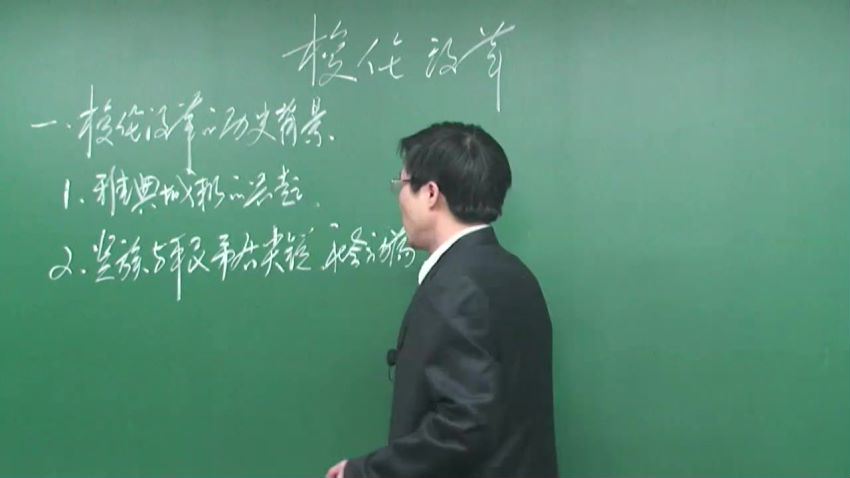 梭伦改革
一、梭伦改革的历史背景
1.雅典城邦的兴起.
2.贵族与平民矛盾尖锐,社会动荡